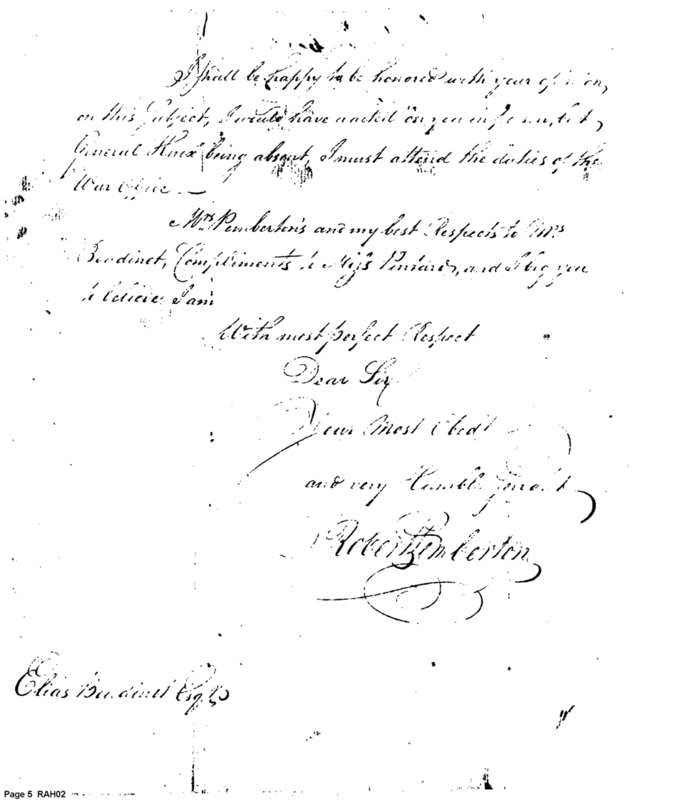 I shall be happy to be honored with your opinion,
on this Subject, I would have waited on you in person, but,
General Knox being absent, I must attend the duties of the
War Office —
Mrs Pemberton's and my best Respects to Mrs
Boudinot, Compliments to Miss and I beg you
to believe I am
With most perfect Respect
Dear Sir
Your Most Obedt
and very Humble Servant
Robert Pemberton
Elias Boudinot Esqr
Page 5 RAH02